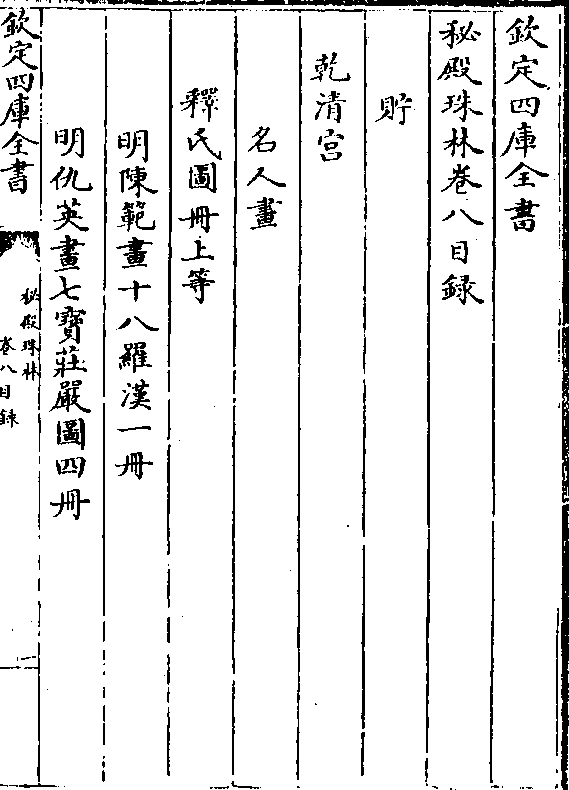 欽定四庫全書
秘殿珠林卷八目録
貯
乾清宮
名人畫
釋氏圖冊上等
明陳範畫十八羅漢一冊
明仇英畫七寶莊嚴圖四冊
欽定四庫全書
秘殿珠林
卷八目録